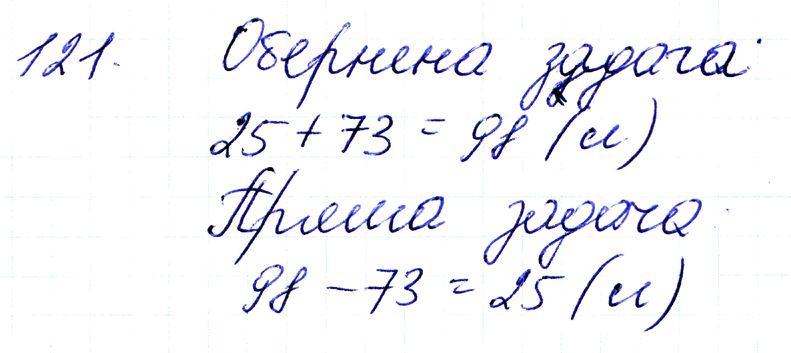 121. Обернена задача:
25 + 73 = 98 (л)
Пряма задача.
98 - 73 = 25 (л)